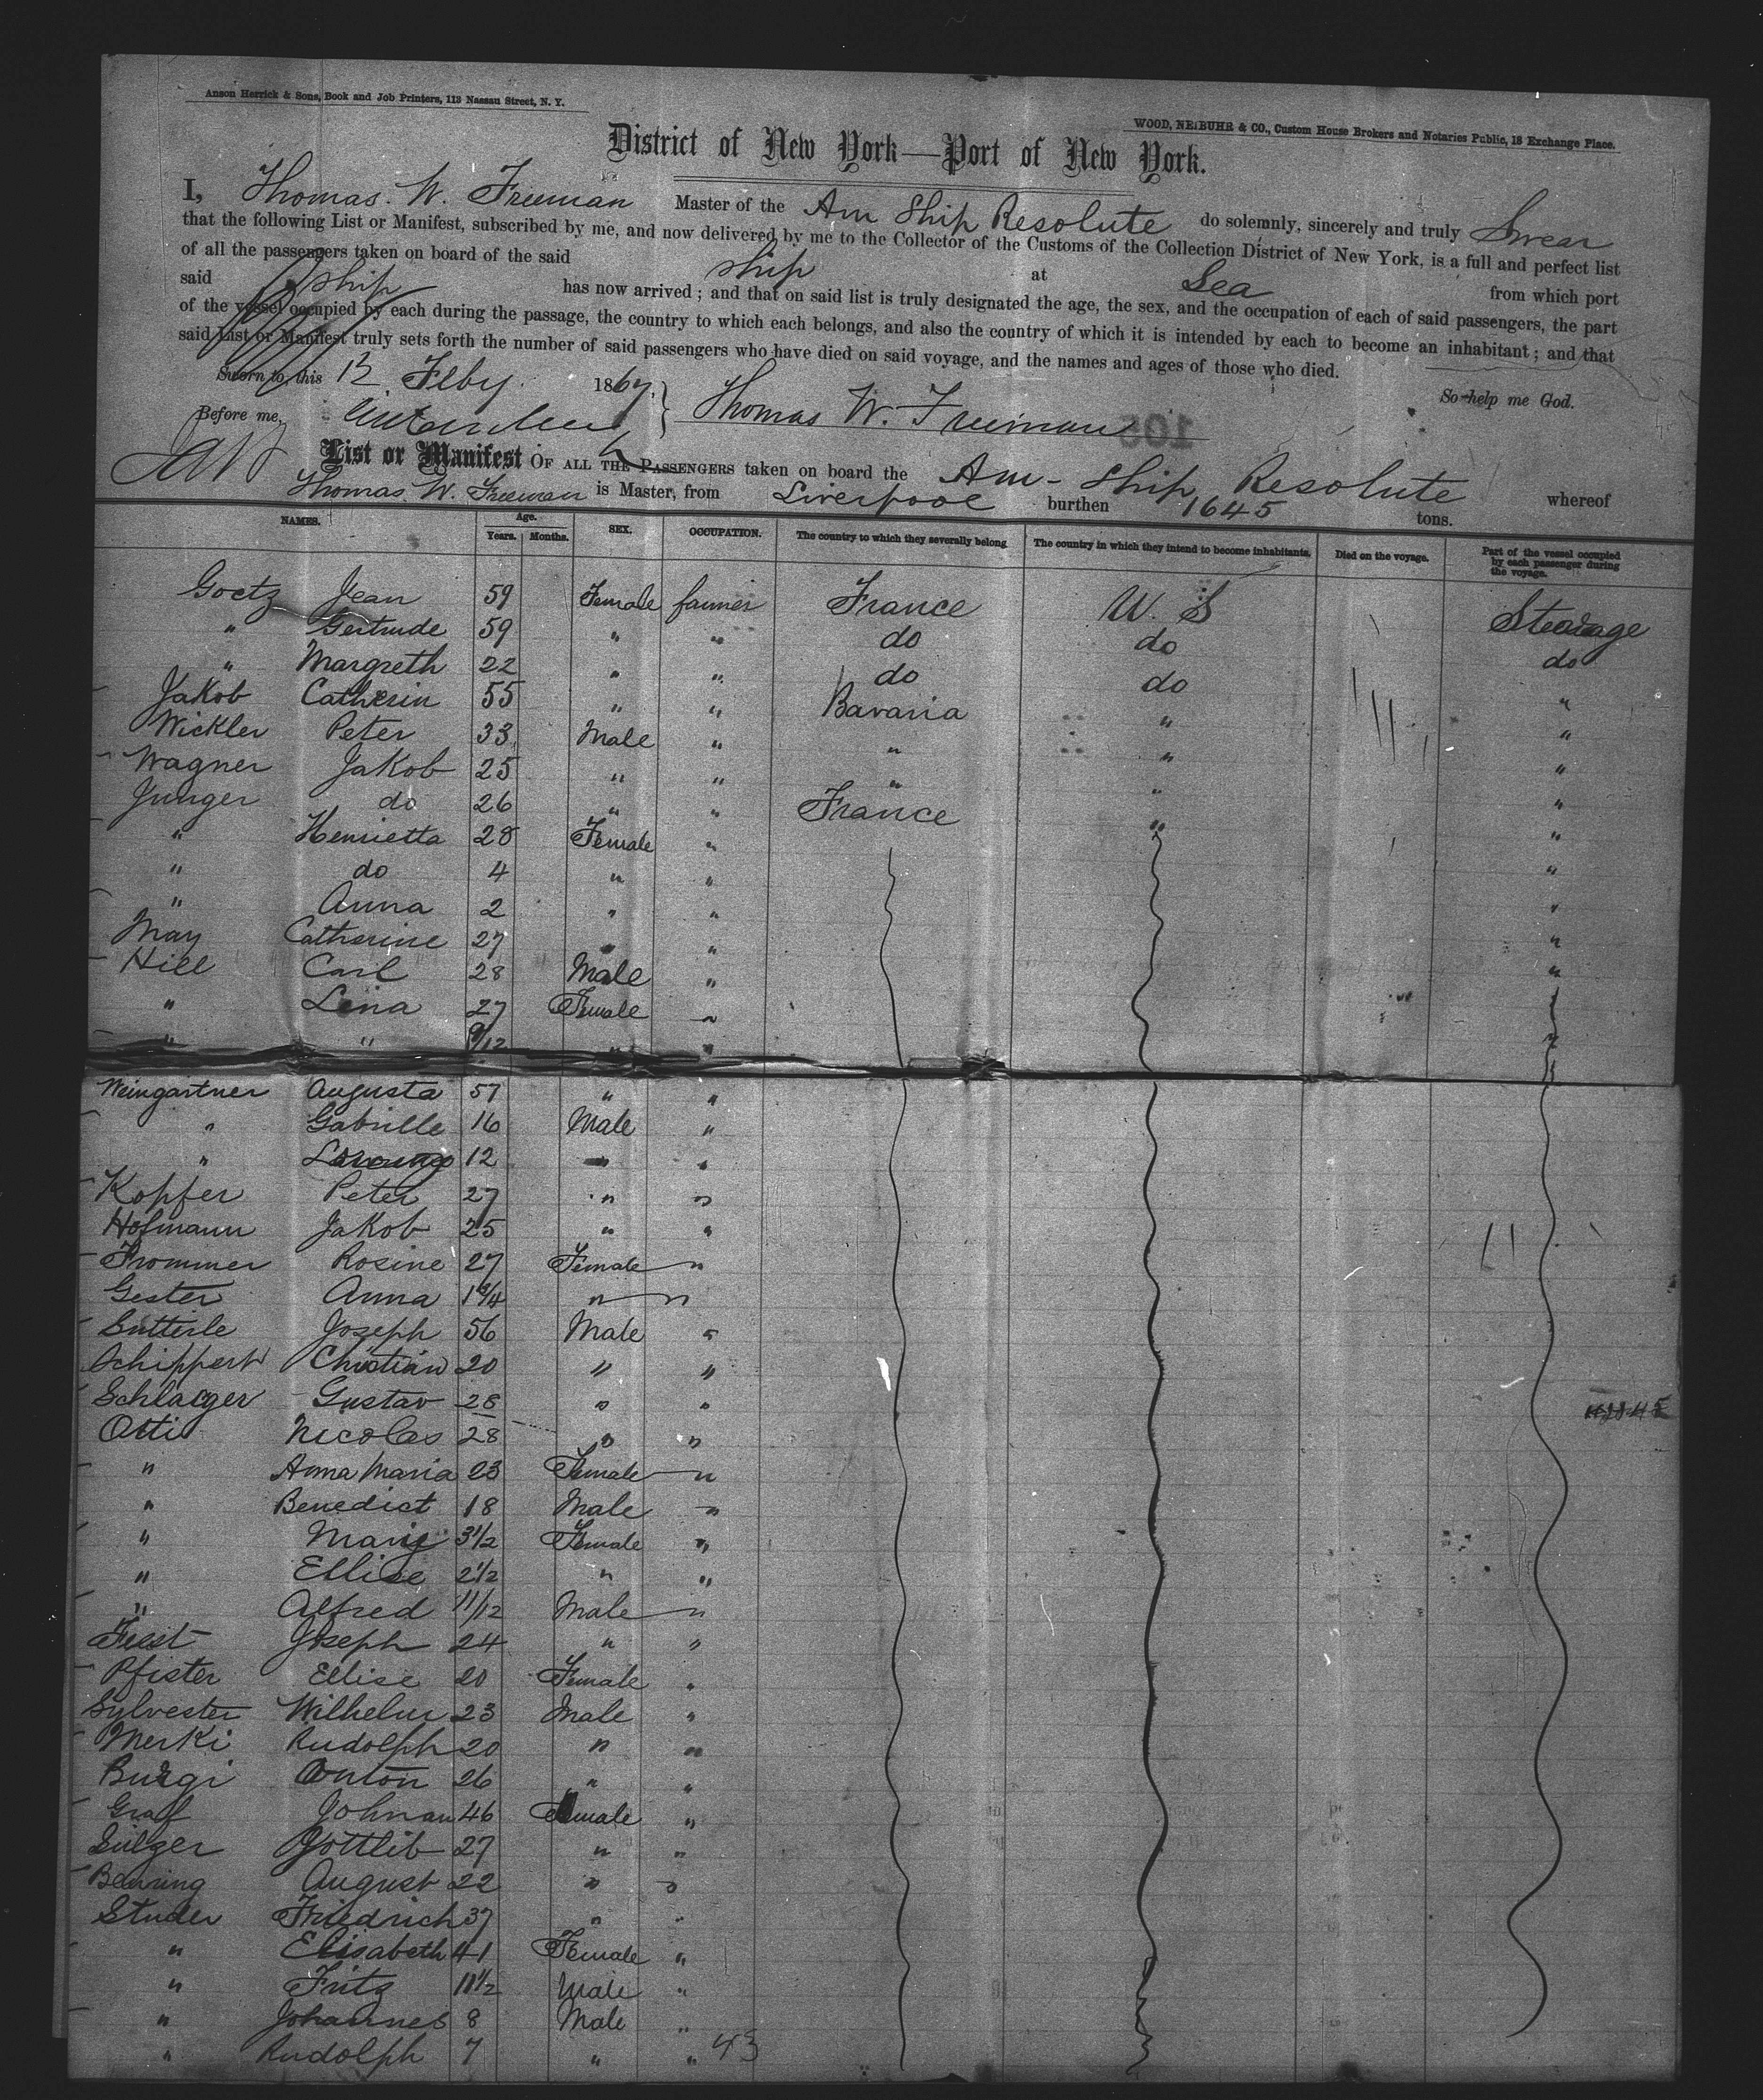 Anson Herrick & Sons, Book and Job Printers, 113 Nassau Street, N. Y.
WOOD, NEIBUHR & CO., Custom House Brokers and Notaries Public, 18 Exchange Place.
District of New York—Port of New York.
I, Thomas. W. Freeman Master of the Am Ship Resolute do solemnly, sincerely and truly Swear
that the following List or Manifest, subscribed by me, and now delivered by me to the Collector of the Customs of the Collection District of New York, is a full and perfect list
of all the passengers taken on board of the said ship at Sea from which port
said ship has now arrived ; and that on said list is truly designated the age, the sex, and the occupation of each of said passengers, the part
of the vessel occupied by each during the passage, the country to which each belongs, and also the country of which it is intended by each to become an inhabitant ; and that
said List or Manifest truly sets forth the number of said passengers who have died on said voyage, and the names and ages of those who died.
Sworn to, this 12 Feby. 1867. So help me God.
Before me, Thomas W. Freeman
105
List or Manifest OF ALL THE PASSENGERS taken on board the Am - Ship Resolute whereof
Thomas. W. Freeman is Master, from Liverpool burthen 1645 tons.
NAMES. Age. Years. Months. SEX. OCCUPATION. The country to which they severally belong. The country in which they intend to become inhabitants. Died on the voyage. Part of the vessel occupied by each passenger during the voyage.
Goetz Jean 59 Female farmer France U. S Stearage
" Gertrude 59 " " do do do
" Margreth 22 " " do do "
Jakob Catherin 55 " " Bavaria " "
Wickler Peter 33 Male " " " "
Wagner Jakob 25 " " " " "
Junger do 26 " " France " "
" Henrietta 28 Female " "
" do 4 " " "
" Anna 2 " " "
May Catherine 27 " " "
Hill Carl 28 Male " "
" Lina 27 Female "
" " 9/12 " " "
Weingartner Augusta 57 " "
" Gabrille 16 Male "
" 12 " "
Kopfer Peter 27 " "
Hofmann Jakob 25 " "
Frommer Rosine 27 Female "
Gester Anna 1 3/4 " "
Sutterle Joseph 56 Male "
Schippert Christian 20 " "
Schlaeger Gustav 28 " "
Otti Nicolas 28 " "
" Anna Maria 23 Female "
" Benedict 18 Male "
" Marie 3 1/2 Female "
" Ellise 2 1/2 " "
" Alfred 11/12 Male "
Feist Joseph 24 " "
Pfister Ellise 20 Female "
Sylvester Wilhelm 23 Male "
Merki Rudolph 20 " "
Burgi Anton 26 " "
Graf Johnan 46 Female "
Sulzer Gottlib 27 " "
Behring August 22 " "
Studer Friedrich 37 " "
" Elisabeth 41 Female "
" Fritz 11 1/2 Male "
" Johannes 8 Male "
" Rudolph 7 " " 43